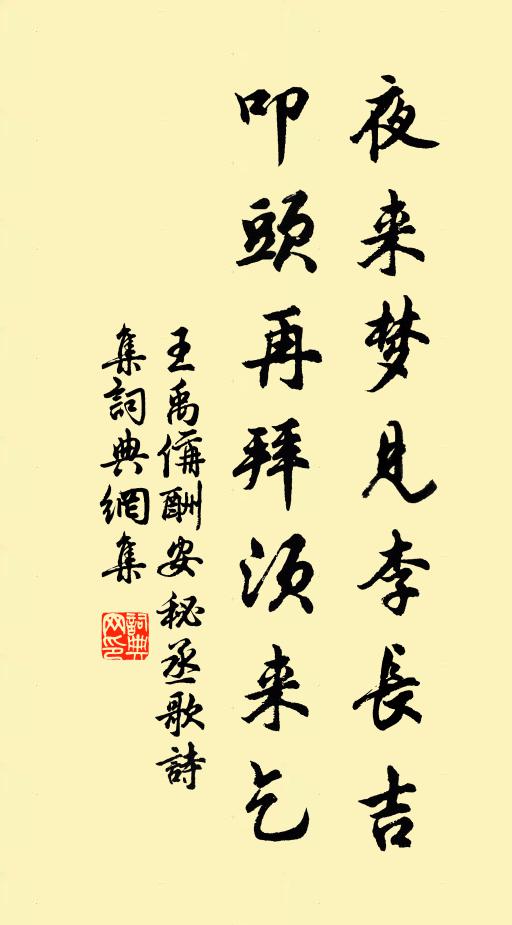 夜来梦见李長吉
叩頭再拜須来乞
王禹偁酬安秘丞歌詩
集詞典網集
詞典网印